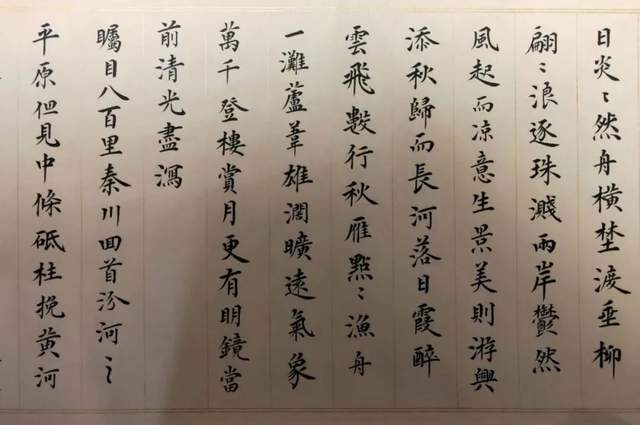 日炎〻然舟横埜渡垂柳
翩〻浪逐珠濺兩岸鬱然
風起而凉意生景美則游興
添秋歸而長河落日霞醉
雲飛數行秋雁點〻漁舟
一灘蘆葦雄渾曠遠氣象
萬千登樓賞月更有明鏡當
前清光盡瀉
矚目八百里秦川回首汾河之
平原但見中條砥柱挽黄河